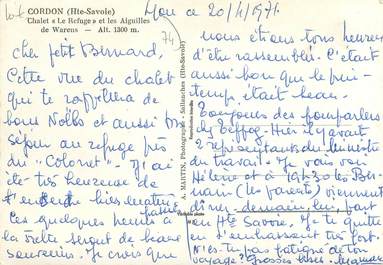 CORDON (Hte-Savoie)
Chalet « Le Refuge » et les Aiguilles
de Warens — Alt. 1300 m.
74
ce 20/4/1971
cher petit Bernard,
Cette vue du chalet
qui te rappellera de
bons Noëls et aussi
séjour au refuge près
du "Coloret" - J'ai
été très heureuse de
t'entendre hier matin
Ces quelques heures à
la seront de beaux
souvenirs. Je crois que
A. MARTIN, Photographe - Sallanches (Hte-Savoie)
Reproduction interdite
nous étions tous heureux
d'être rassemblés. C'était
aussi bon que le prin-
temps, était beau.
Toujours des pourparlers
chez - Hier il y avait
2 représentants du Ministre
du travail. Je vais voir
Hélène et à 19h30 les
(les parents) viennent
dîner, demain
Hte Savoie. Je te quitte
en t'embrassant très fort.
N'es-tu pas fatigué de ton
voyage? Grosses bises.